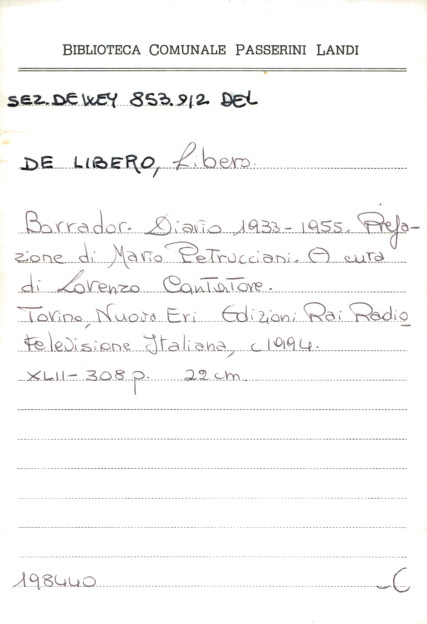 BIBLIOTECA COMUNALE PASSERINI LANDI
SEZ. DEWEY 853.912 DEL
DE LIBERO, Libero.
Borrador. Diario 1933-1955. Prefa-
zione di Mario Petrucciani. A cura
di Lorenzo Cantatore.
Torino, Nuova Eri Edizioni Rai Radio
Televisione Italiana, c1994.
XLII-308 p. 22 cm.
198440 -C